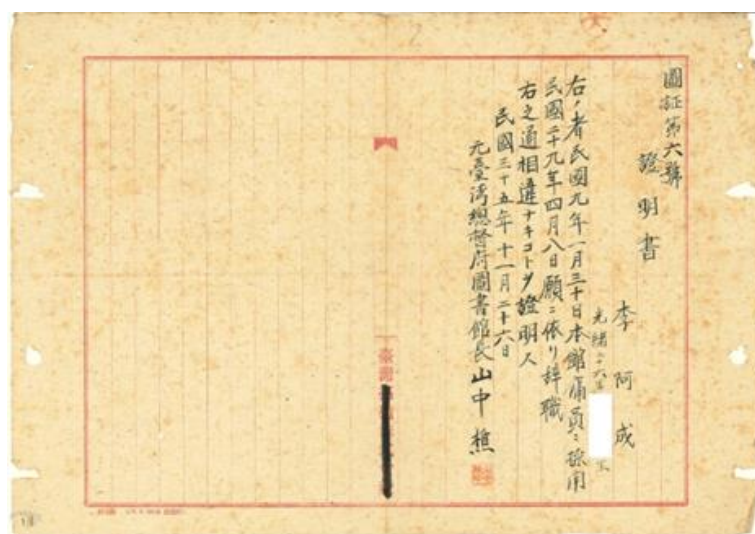 圖証第六號
證明書
李阿成
光緒二十六年
右ノ者民國九年一月三十日本館傭員ニ採用
民國二十九年四月八日願ニ依リ辞職
右之通相違ナキコトヲ證明ス
民國三十五年十一月二十六日
元臺湾總督府圖書館長山中樵
臺灣